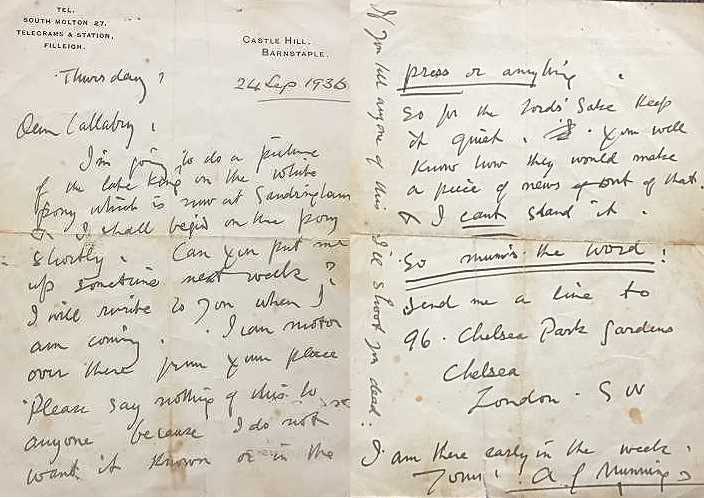 TEL.
SOUTH MOLTON 27.
TELEGRAMS & STATION,
FILLEIGH.
CASTLE HILL,
BARNSTAPLE.
Thursday
24 Sep 1936
Dear Callaby,
I'm going to do a picture
of the late King on the white
pony which is now at Sandringham
& I shall begin on the pony
shortly. Can you put me
up sometime next week?
I will write to you when I
am coming. I can motor
over there from your place
Please say nothing of this to
anyone because I do not
want it known or in the
press or anything.
So for the Lords' Sake keep
it quiet. You well
know how they would make
a piece of news out of that.
& I cant stand it.
So mum's the word!
Send me a line to
96. Chelsea Park Gardens
Chelsea
London. S W
I am there early in the week.
Yours. A J Munnings
If you tell anyone of this I'll shoot you dead!